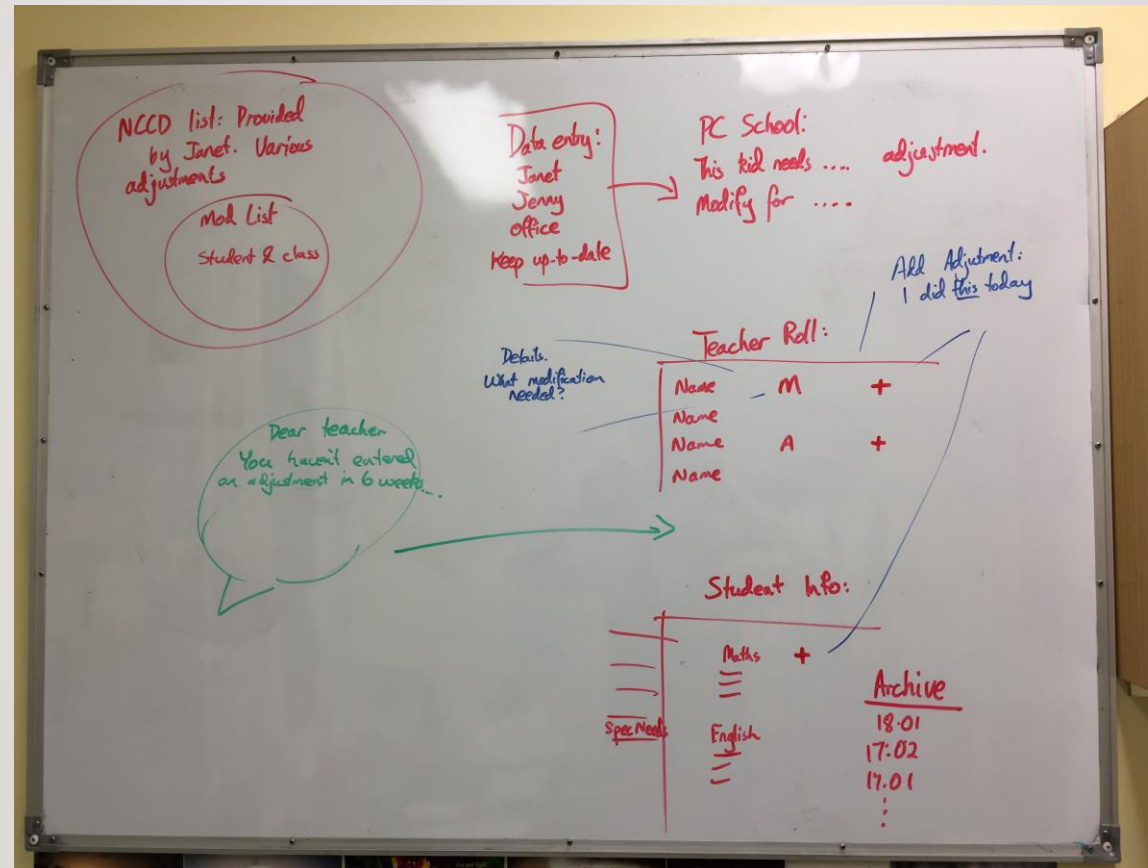 NCCD list: Provided
by Janet. Various
adjustments
Mod List
Student & class
Data entry:
Janet
Jenny
office
Keep up-to-date
PC School:
This kid needs .... adjustment.
Modify for ....
Add Adjutment:
I did this today
Details.
What modification
needed?
Teacher Roll:
Name M +
Name
Name A +
Name
Dear teacher
You haven't entered
an adjustment in 6 weeks...
Student Info:
Spec Needs
Maths +
English
Archive
18.01
17.02
17.01